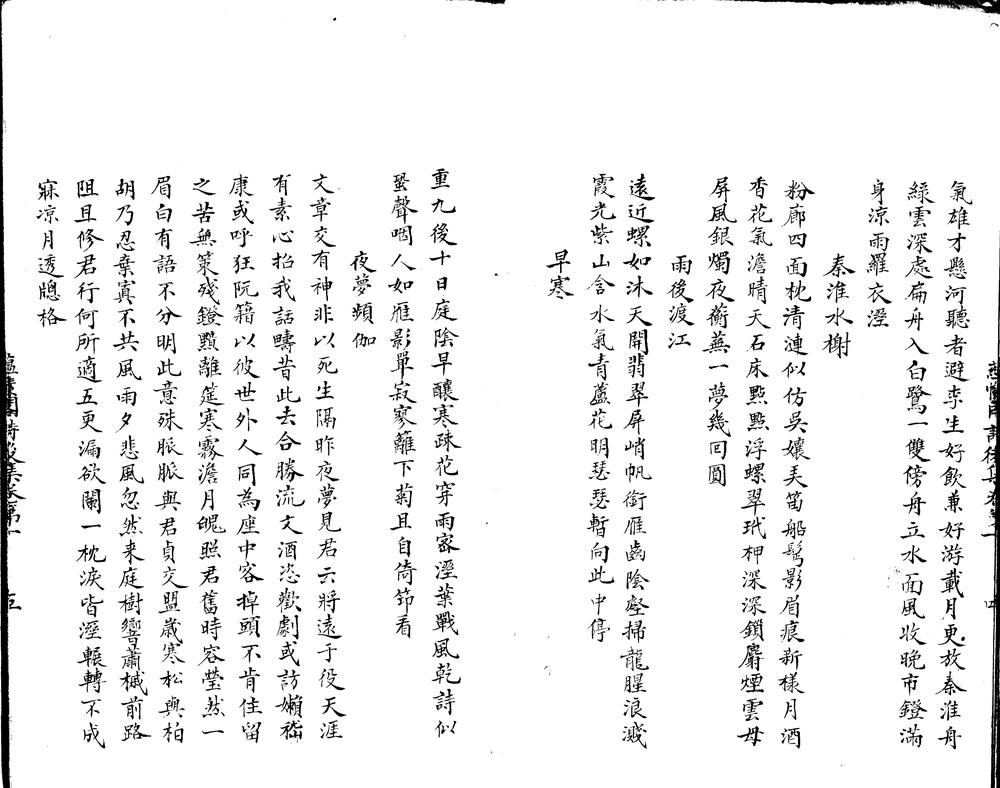 氣雄才懸河聽者避李生好飲兼好游載月更放秦淮舟
綠雲深處扁舟入白鷺一雙傍舟立水面風收晚市鐙滿
身涼雨羅衣溼
秦淮水榭
粉廊四面枕清漣似仿吳孃美笛船鬢影眉痕新樣月酒
香花氣澹晴天石床點點浮螺翠玳柙深深鎖麝煙雲母
屏風銀燭夜蘅蕪一夢幾回圓
雨後渡江
遠近螺如沐天開翡翠屏峭帆銜雁齒陰壑掃龍腥浪濺
霞光紫山含水氣青蘆花明瑟瑟暫向此中停
早寒
重九後十日庭陰早釀寒疎花穿雨密溼葉戰風乾詩似
蛩聲咽人如雁影單寂寥籬下菊且自倚筇看
夜夢頻伽
文章交有神非以死生隔昨夜夢見君云將遠于役天涯
有素心招我話疇昔此去合勝流文酒恣歡劇或訪嬾嵇
康或呼狂阮籍以彼世外人同為座中客掉頭不肯住留
之苦無策殘鐙黯離筵寒霧澹月魄照君舊時容瑩然一
眉白有語不分明此意殊脈脈與君貞交盟歲寒松與柏
胡乃忍棄寘不共風雨夕悲風忽然来庭樹響蕭槭前路
阻且修君行何所適五更漏欲闌一枕淚皆溼輾轉不成
寐凉月透牕格